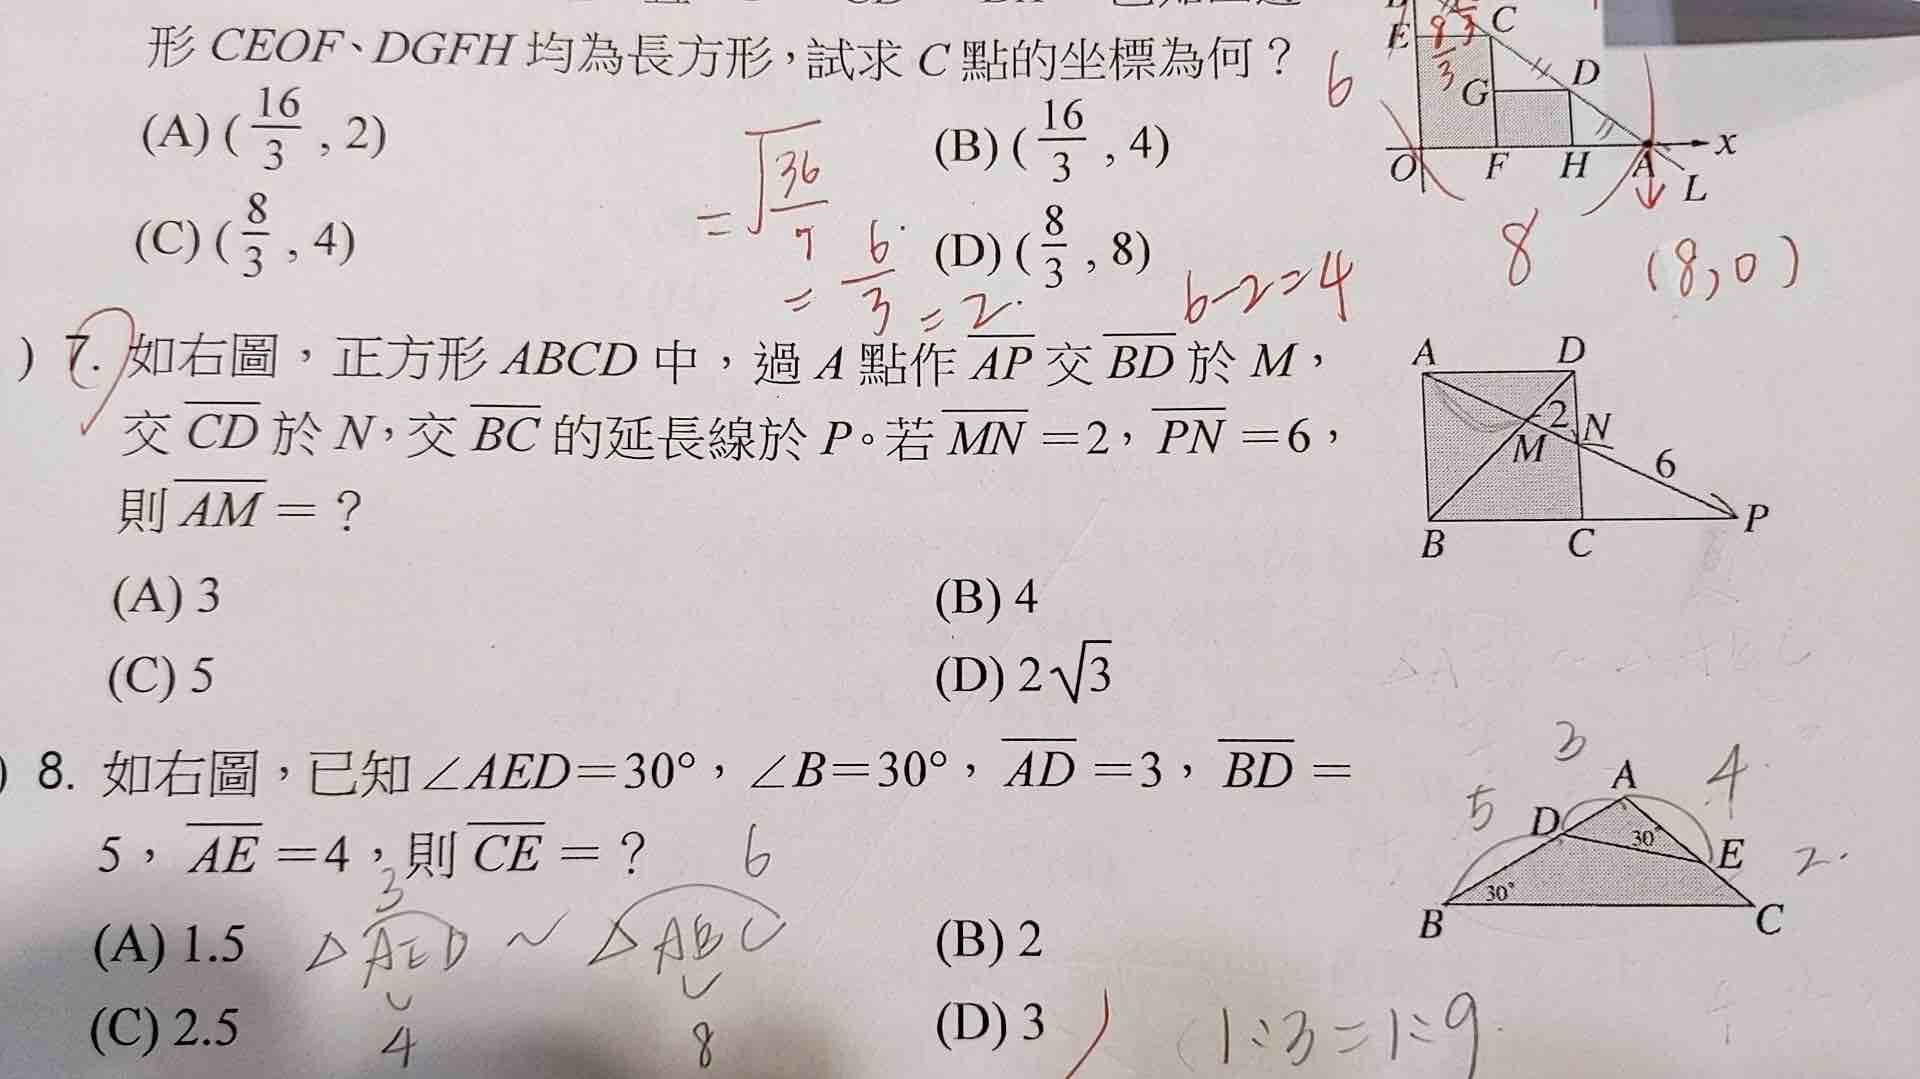 形 CEOF、DGFH 均為長方形，試求 C 點的坐標為何？
(A) (16/3 , 2)
(B) (16/3 , 4)
(C) (8/3 , 4)
(D) (8/3 , 8)
E 8/3 C
6
G D
O F H A x
L
8 (8,0)
= √36/
= 6/3 = 2.
6-2=4
) 7. 如右圖，正方形 ABCD 中，過 A 點作 AP 交 BD 於 M，
交 CD 於 N，交 BC 的延長線於 P。若 MN =2，PN =6，
則 AM = ？
(A) 3
(B) 4
(C) 5
(D) 2√3
A D
2 N
M
6
P
B C
) 8. 如右圖，已知∠AED=30°，∠B=30°，AD =3，BD =
5，AE =4，則 CE = ？
(A) 1.5
(B) 2
(C) 2.5
(D) 3
3 6
△AED ~ △ABC
4 8
1:3=1:9
3
A 4
5 D 30° E 2
B 30° C